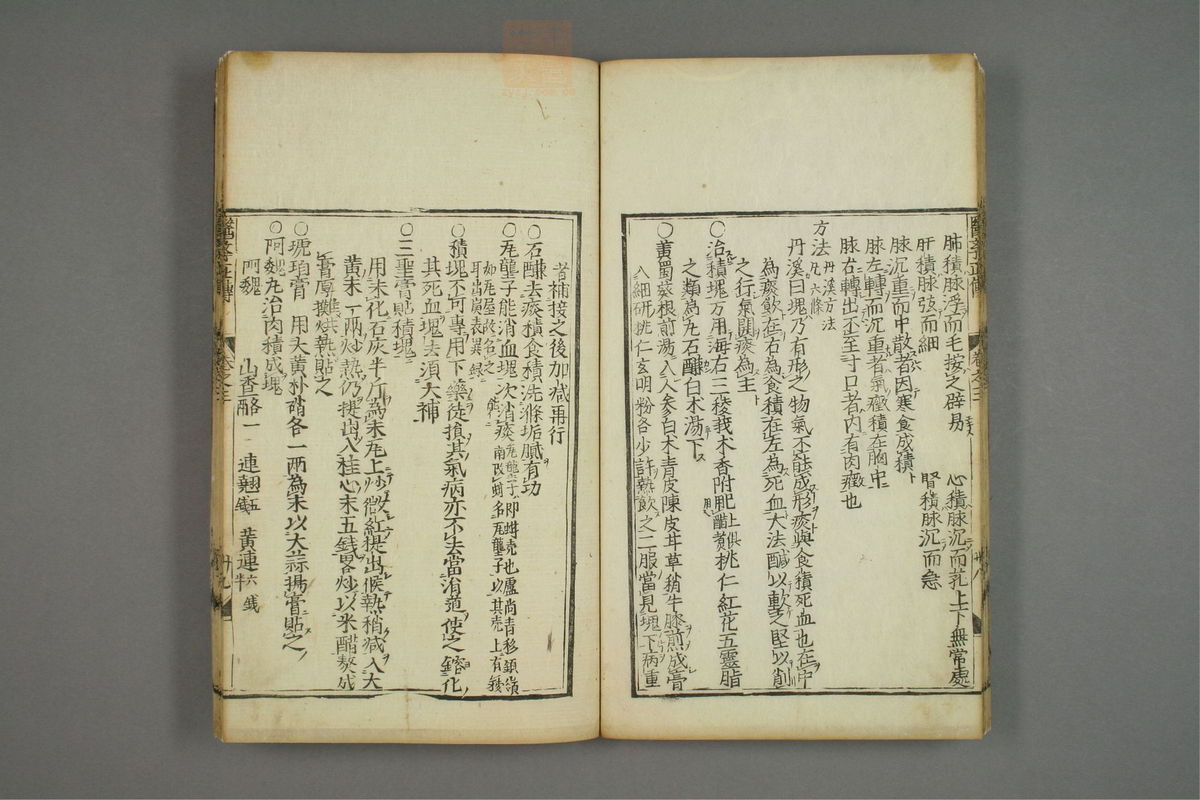 肺積脉浮而毛按之辟易　心積脉沉而芤上下無常處
肝積脉弦而細　腎積脉沉而急
脉沉重而中散者因寒食成積
脉左轉而沉重者氣癥積在胸中
脉右轉出不至寸口者內有肉癥也
方法 丹溪方法 凡六條
丹溪曰塊乃有形之物氣不能成形痰與食積死血也在中
為痰飲在右為食積在左為死血大法鹹以軟之堅以削
之行氣開痰為主
○治積塊方用海石三稜莪朮香附 俱用醋煑 桃仁紅花五靈脂
之類為丸石醎白朮湯下
○蜀葵根煎湯入人參白朮青皮陳皮甘草梢牛膝煎成膏
入細研桃仁玄明粉各少許熱飲之二服當見塊下病重
者補接之後加减再行
○石醎去痰積食積洗滌垢膩有功
○瓦壟子能消血塊次消痰
○積塊不可專用下藥徒損其氣病亦不去當消導使之鎔化
其死血塊去湏大補
○三聖膏貼積塊
用未化石灰半斤為末瓦上炒微紅提出候熱稍减入大
黃末一兩炒熱仍提出入桂心末五錢畧炒以米醋熬成
膏厚攤烘熱貼之
○琥珀膏　用大黃朴硝各一兩為末以大蒜搗膏貼之
○阿魏丸治肉積成塊
阿魏　山查 各一　連翹 五錢　黃連 六錢半